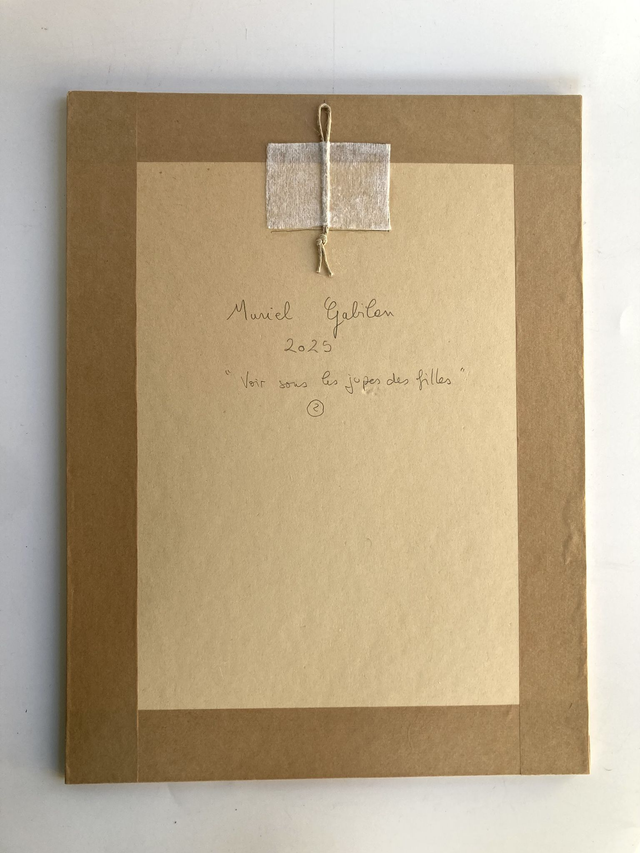 Muriel Gabilan
2025
"Voir sous les jupes des filles"
2